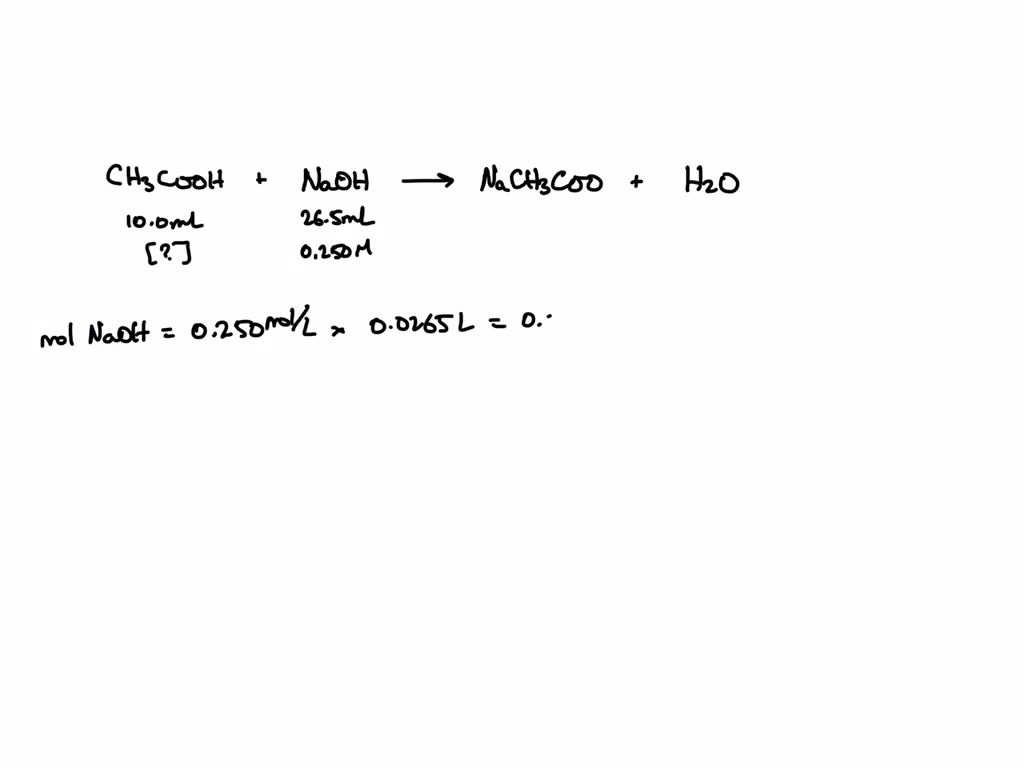 CH3COOH + NaOH → NaCH3COO + H2O
10.0mL 26.5mL
[?] 0.250M
mol NaOH = 0.250 mol/L × 0.0265 L = 0.